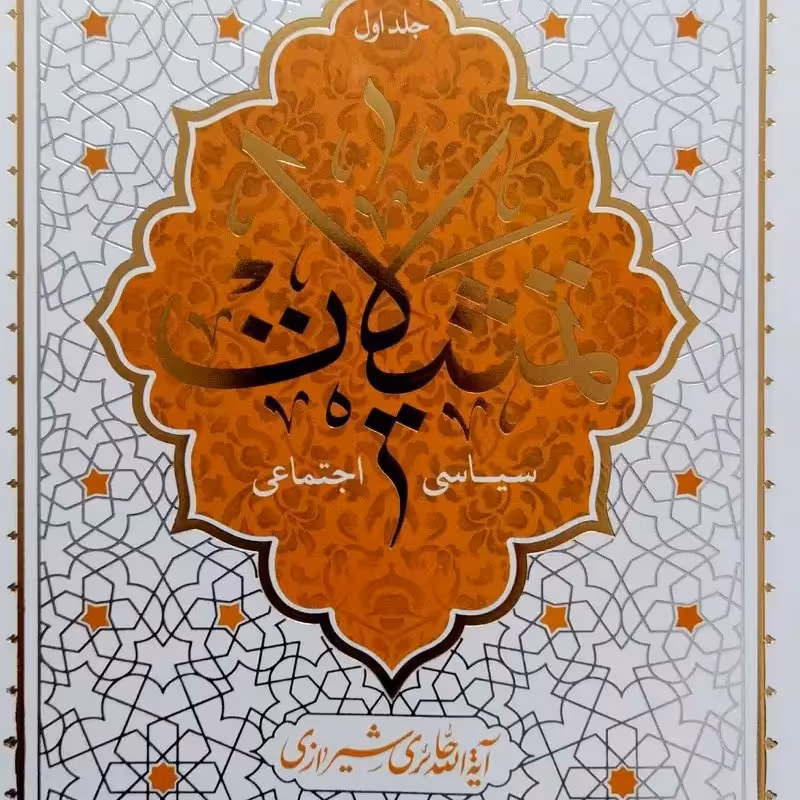 جلد اول
تمثیلات
سیاسی اجتماعی
آیة الله حائری شیرازی